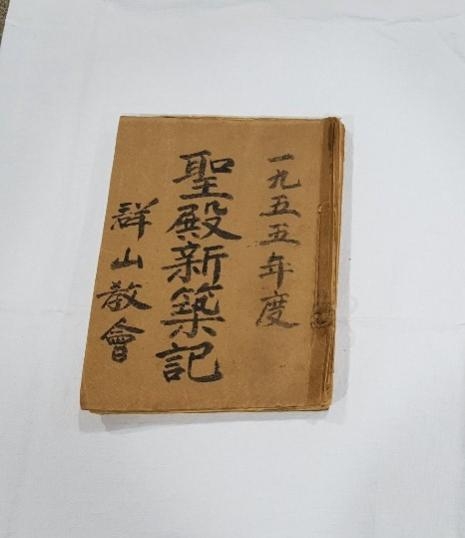 一九五五年度
聖殿新築記
群山教會